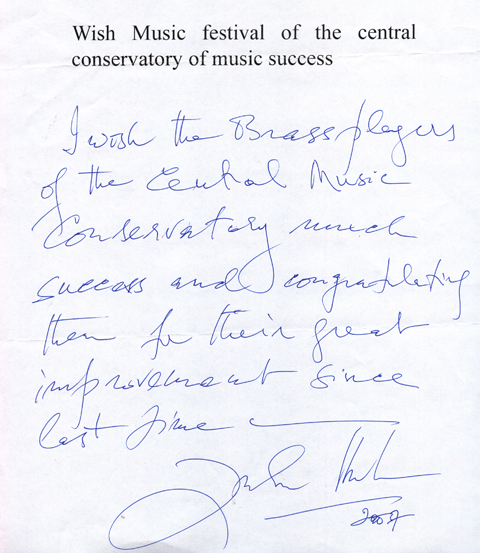 Wish Music festival of the central
conservatory of music success
I wish the Brass players
of the Central Music
Conservatory much
success and congratulating
them for their great
improvement since
last time
2007